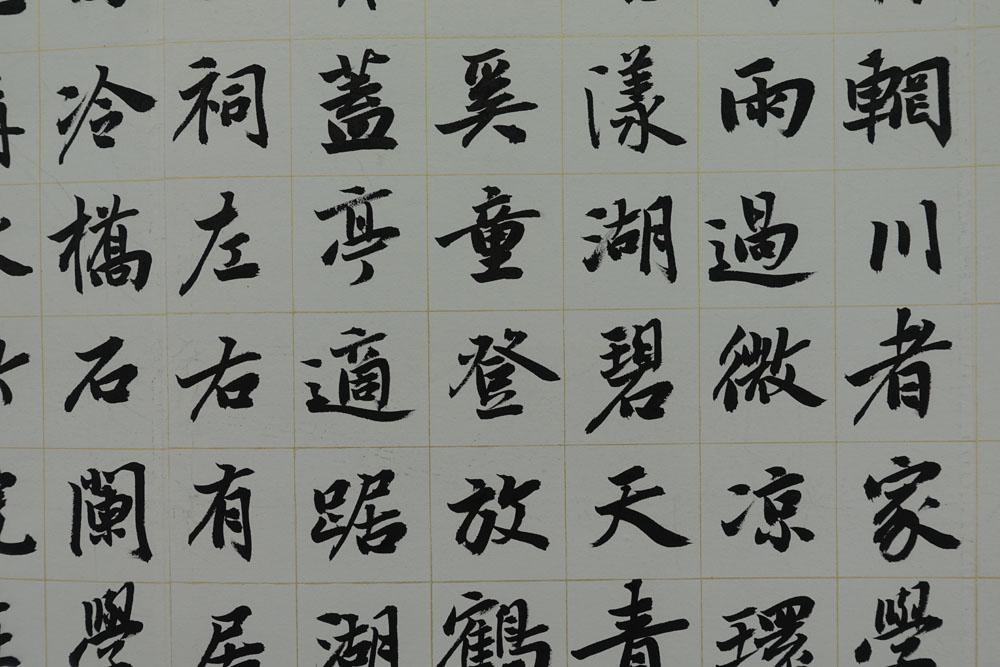 輞川者家學
雨過微涼環
漾湖碧天青
奚童登放鶴
蓋亭適踞湖
祠左右有居
冷橋石闌學